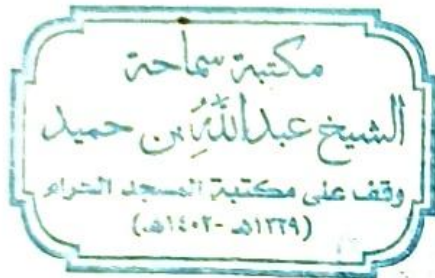 مكتبة سماحة
الشيخ عبدالله بن حميد
وقف على مكتبة المسجد الحرام
(١٣٢٩هـ - ١٤٠٢هـ)